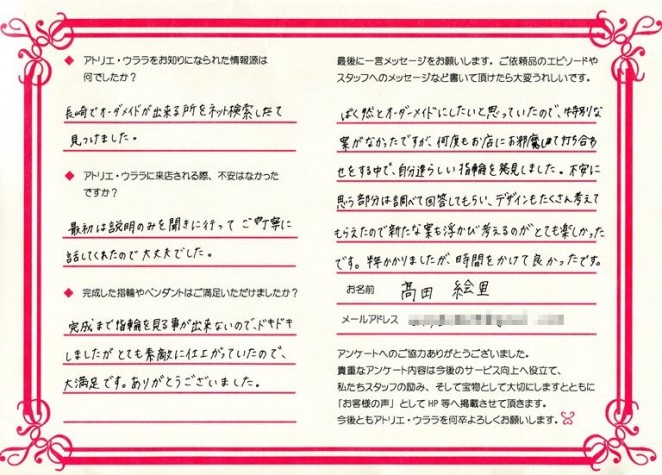 ◆ アトリエ・ウララをお知りになられた情報源は
何でしたか？
長崎でオーダメイドが出来る所をネット検索したて
見つけました。
◆ アトリエ・ウララに来店される際、不安はなかった
ですか？
最初は説明のみを聞きに行って ご丁寧に
話してくれたので大丈夫でした。
◆ 完成した指輪やペンダントはご満足いただけましたか？
完成まで指輪を見る事が出来ないので、ドキドキ
しましたが とても素敵に仕上がっていたので、
大満足です。ありがとうございました。
最後に一言メッセージをお願いします。ご依頼品のエピソードや
スタッフへのメッセージなど書いて頂けたら大変うれしいです。
ばく然とオーダーメイドにしたいと思っていたので、特別な
案がなかったですが、何度もお店にお邪魔して打ち合わ
せをする中で、自分達らしい指輪を発見しました。不安に
思う部分は調べて回答してもらい、デザインもたくさん考えて
もらえたので新たな案も浮かび考えるのがとても楽しかった
です。半年かかりましたが、時間をかけて良かったです。
お名前 髙田 絵里
メールアドレス
アンケートへのご協力ありがとうございました。
貴重なアンケート内容は今後のサービス向上へ役立て、
私たちスタッフの励み、そして宝物として大切にしますとともに
「お客様の声」としてHP等へ掲載させて頂きます。
今後ともアトリエ・ウララを何卒よろしくお願いします。